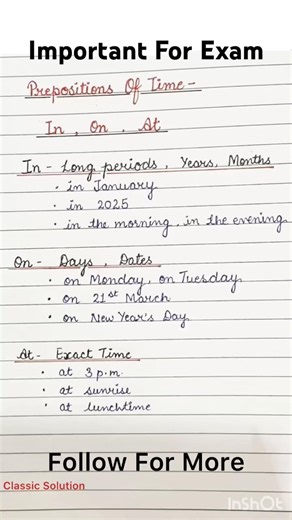 Important For Exam
Prepositions Of Time -
In , On , At
In - Long periods , Years, Months
• in January
• in 2025
• in the morning, in the evening
On - Days, Dates
• on Monday, on Tuesday
• on 21st March
• on New Year's Day
At - Exact Time
• at 3 p.m.
• at sunrise
• at lunchtime
Follow For More
Classic Solution
InShOt